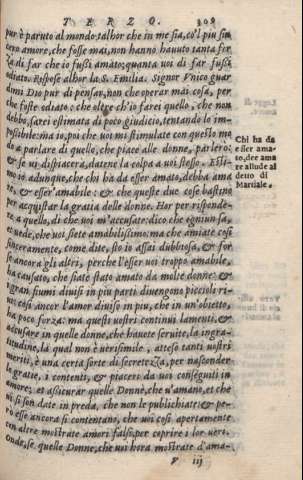 TERZO. 309
pur è paruto al mondo talhor che in me sia, co'l piu sin
cero amore, che fosse mai, non hanno hauuto tanta for
za di far che io fussi amato; quanta uoi di far fussi
odiato. Rispose alhor la S. Emilia. Signor Vnico guar
dimi Dio pur di pensar, non che operar mai cosa, per
che foste odiato: che oltre ch'io farei quello, che non
debbo, sarei estimata di poco giudicio, tentando lo im-
possibile: ma io, poi che uoi mi stimulate con questo mo
do a parlare di quello, che piace alle donne, parlerò:
& se ui dispiacerà, datene la colpa a uoi stesso. Esti-
mo io adunque, che chi ha da esser amato, debba ama
re, & esser' amabile: & che queste due cose bastino
per acquistar la gratia delle donne. Hor per risponde-
re a quello, di che uoi m'accusate: dico che ogniun sa,
et uede, che uoi siete amabilissimo: ma che amiate così
sinceramente, come dite, sto io assai dubbiosa, & for
se ancora gli altri, perche l'esser uoi troppo amabile,
ha causato, che siate stato amato da molte donne: &
i gran fiumi diuisi in piu parti diuengono piccioli ri-
ui: così ancor l'amor diuiso in piu, che in un'obietto,
ha poco forza: ma questi uostri continui lamenti, &
accusare in quelle donne, che hauete seruite, la ingra-
titudine, la qual non è uerisimile, atteso tanti uostri
meriti, è una certa sorte di secretezza, per nasconder
le gratie, i contenti, & piaceri da uoi conseguiti in
amore; et assicurar quelle Donne, che u'amano, et che
ui si son date in preda, che non le publichiate: & pe-
rò esse ancora si contentano, che uoi così apertamente
con altre mostrate amori falsi, per coprire i lor ueri.
Onde, se quelle Donne, che uoi hora mostrate d'ama-
V iij
Chi ha da
esser ama-
to, dee ama
re allude al
detto di
Martiale.